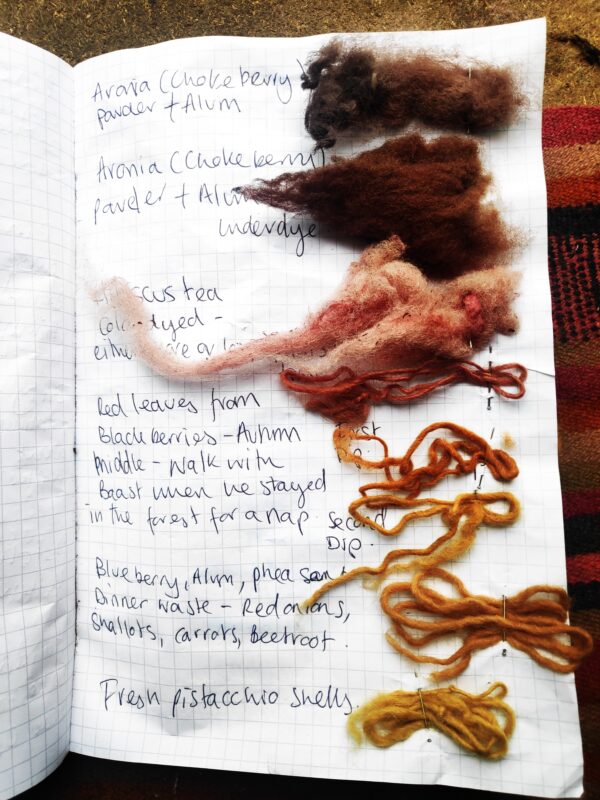 Aronia (Chokeberry)
powder + Alum
Aronia (Chokeberry)
powder + Alum
underdye
cus tea
dyed -
either
Red leaves from
Blackberries - Autumn
Middle - Walk with
Beast when we stayed
in the forest for a nap.
First
Dip.
Second
Dip.
Blueberry, Alum, pheasant
Dinner waste - Red onions,
Shallots, carrots, Beetroot.
Fresh pistacchio shells.